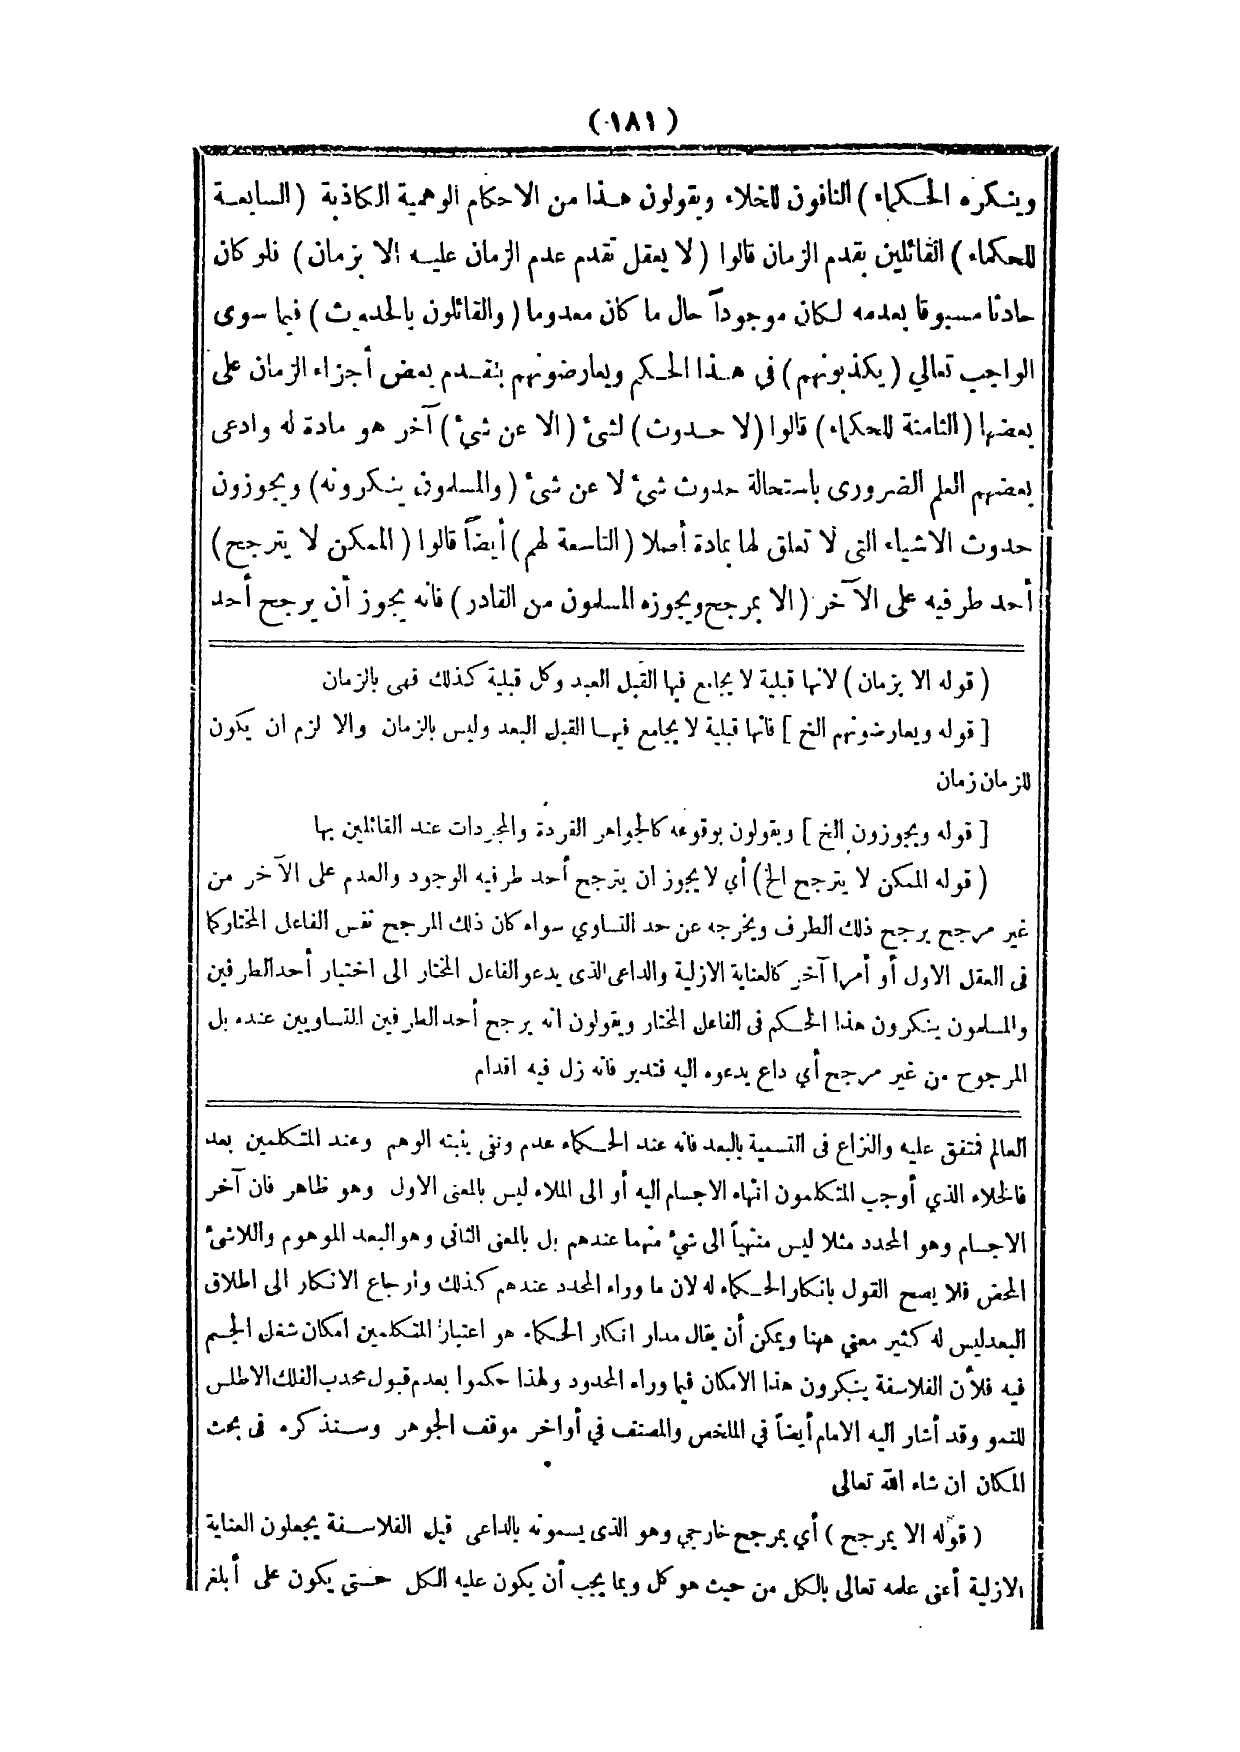 (١٨١)
وينكره الحكماء) النافون للخلاء ويقولون هذا من الاحكام الوهمية الكاذبة (السابعة
للحكماء) القائلين بقدم الزمان قالوا (لا يعقل تقدم عدم الزمان عليه الا بزمان) فلو كان
حادثا مسبوقا بعدمه لكان موجوداً حال ما كان معدوما (والقائلون بالحدوث) فيما سوى
الواجب تعالي (يكذبونهم) في هذا الحكم ويعارضونهم بتقدم بعض أجزاء الزمان على
بعضها (الثامنة للحكماء) قالوا (لا حدوث) لشئ (الا عن شئ) آخر هو مادة له وادعى
بعضهم العلم الضرورى باستحالة حدوث شئ لا عن شئ (والمسلمون ينكرونه) ويجوزون
حدوث الاشياء التى لا تعلق لها بمادة أصلا (التاسعة لهم) أيضاً قالوا (الممكن لا يترجح)
أحد طرفيه على الآخر (الا بمرجح ويجوزه المسلمون من القادر) فانه يجوز أن يرجح أحد
(قوله الا بزمان) لانها قبلية لا يجامع فيها القبل العبد وكل قبلية كذلك فهى بالزمان
[قوله ويعارضونهم الخ] فانها قبلية لا يجامع فيها القبل البعد وليس بالزمان والا لزم ان يكون
للزمان زمان
[قوله ويجوزون الخ] ويقولون بوقوعه كالجواهر الفردة والمجردات عند القائلين بها
(قوله الممكن لا يترجح الخ) أي لا يجوز ان يترجح أحد طرفيه الوجود والعدم على الآخر من
غير مرجح يرجح ذلك الطرف ويخرجه عن حد التساوي سواء كان ذلك المرجح نفس الفاعل المختار كما
فى العقل الاول أو أمرا آخر كالعناية الازلية والداعى الذى يدعو الفاعل المختار الى اختيار أحد الطرفين
والمسلمون ينكرون هذا الحكم فى الفاعل المختار ويقولون انه يرجح أحد الطرفين المتساويين عنده بل
المرجوح من غير مرجح أي داع يدعوه اليه فتدبر فانه زل فيه اقدام
العالم فمتفق عليه والنزاع فى التسمية بالبعد فانه عند الحكماء عدم ونفى يثبته الوهم وعند المتكلمين بعد
فالخلاء الذي أوجب المتكلمون انتهاء الاجسام اليه أو الى الملاء ليس بالمعنى الاول وهو ظاهر فان آخر
الاجسام وهو المحدد مثلا ليس منتهياً الى شئ منهما عندهم بل بالمعنى الثانى وهو البعد الموهوم واللاشئ
المحض فلا يصح القول بانكار الحكماء له لان ما وراء المحدد عندهم كذلك وارجاع الانكار الى اطلاق
البعد ليس له كثير معني ههنا ويمكن أن يقال مدار انكار الحكماء هو اعتبار المتكلمين امكان شغل الجسم
فيه فلأن الفلاسفة ينكرون هذا الامكان فيما وراء المحدود ولهذا حكموا بعدم قبول محدب الفلك الاطلس
للنمو وقد أشار اليه الامام أيضاً في الملخص والمصنف في أواخر موقف الجوهر وسنذكره فى بحث
المكان ان شاء الله تعالى
(قوله الا بمرجح) أي بمرجح خارجي وهو الذى يسمونه بالداعى قيل الفلاسفة يجعلون العناية
الازلية أعنى علمه تعالى بالكل من حيث هو كل وبما يجب أن يكون عليه الكل حتى يكون على أبلغ